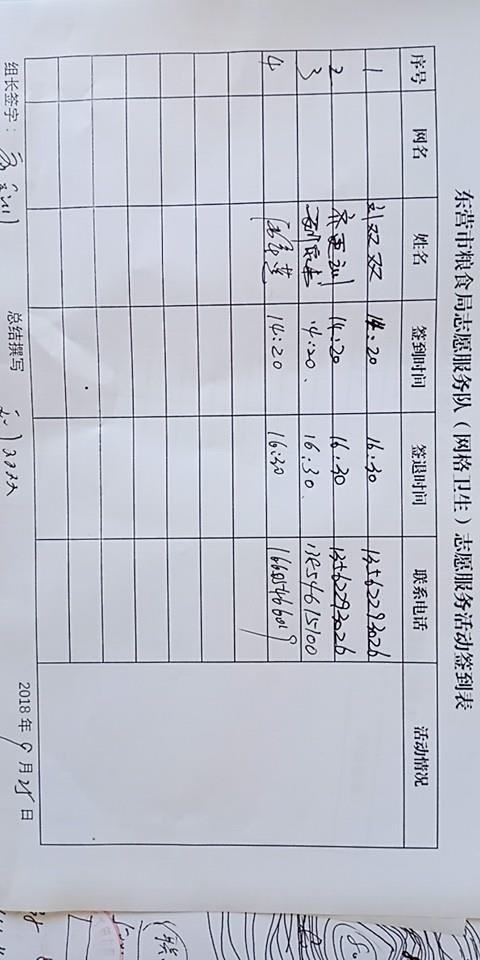 东营市粮食局志愿服务队（网格卫生）志愿服务活动签到表
序号 网名 姓名 签到时间 签退时间 联系电话 活动情况
1 刘双双 14:20 16:30 13562293026
2 14:20 16:30 13562293026
3 14:20 16:30 13854615100
4 14:20 16:30
组长签字： 总结撰写 2018年9月25日